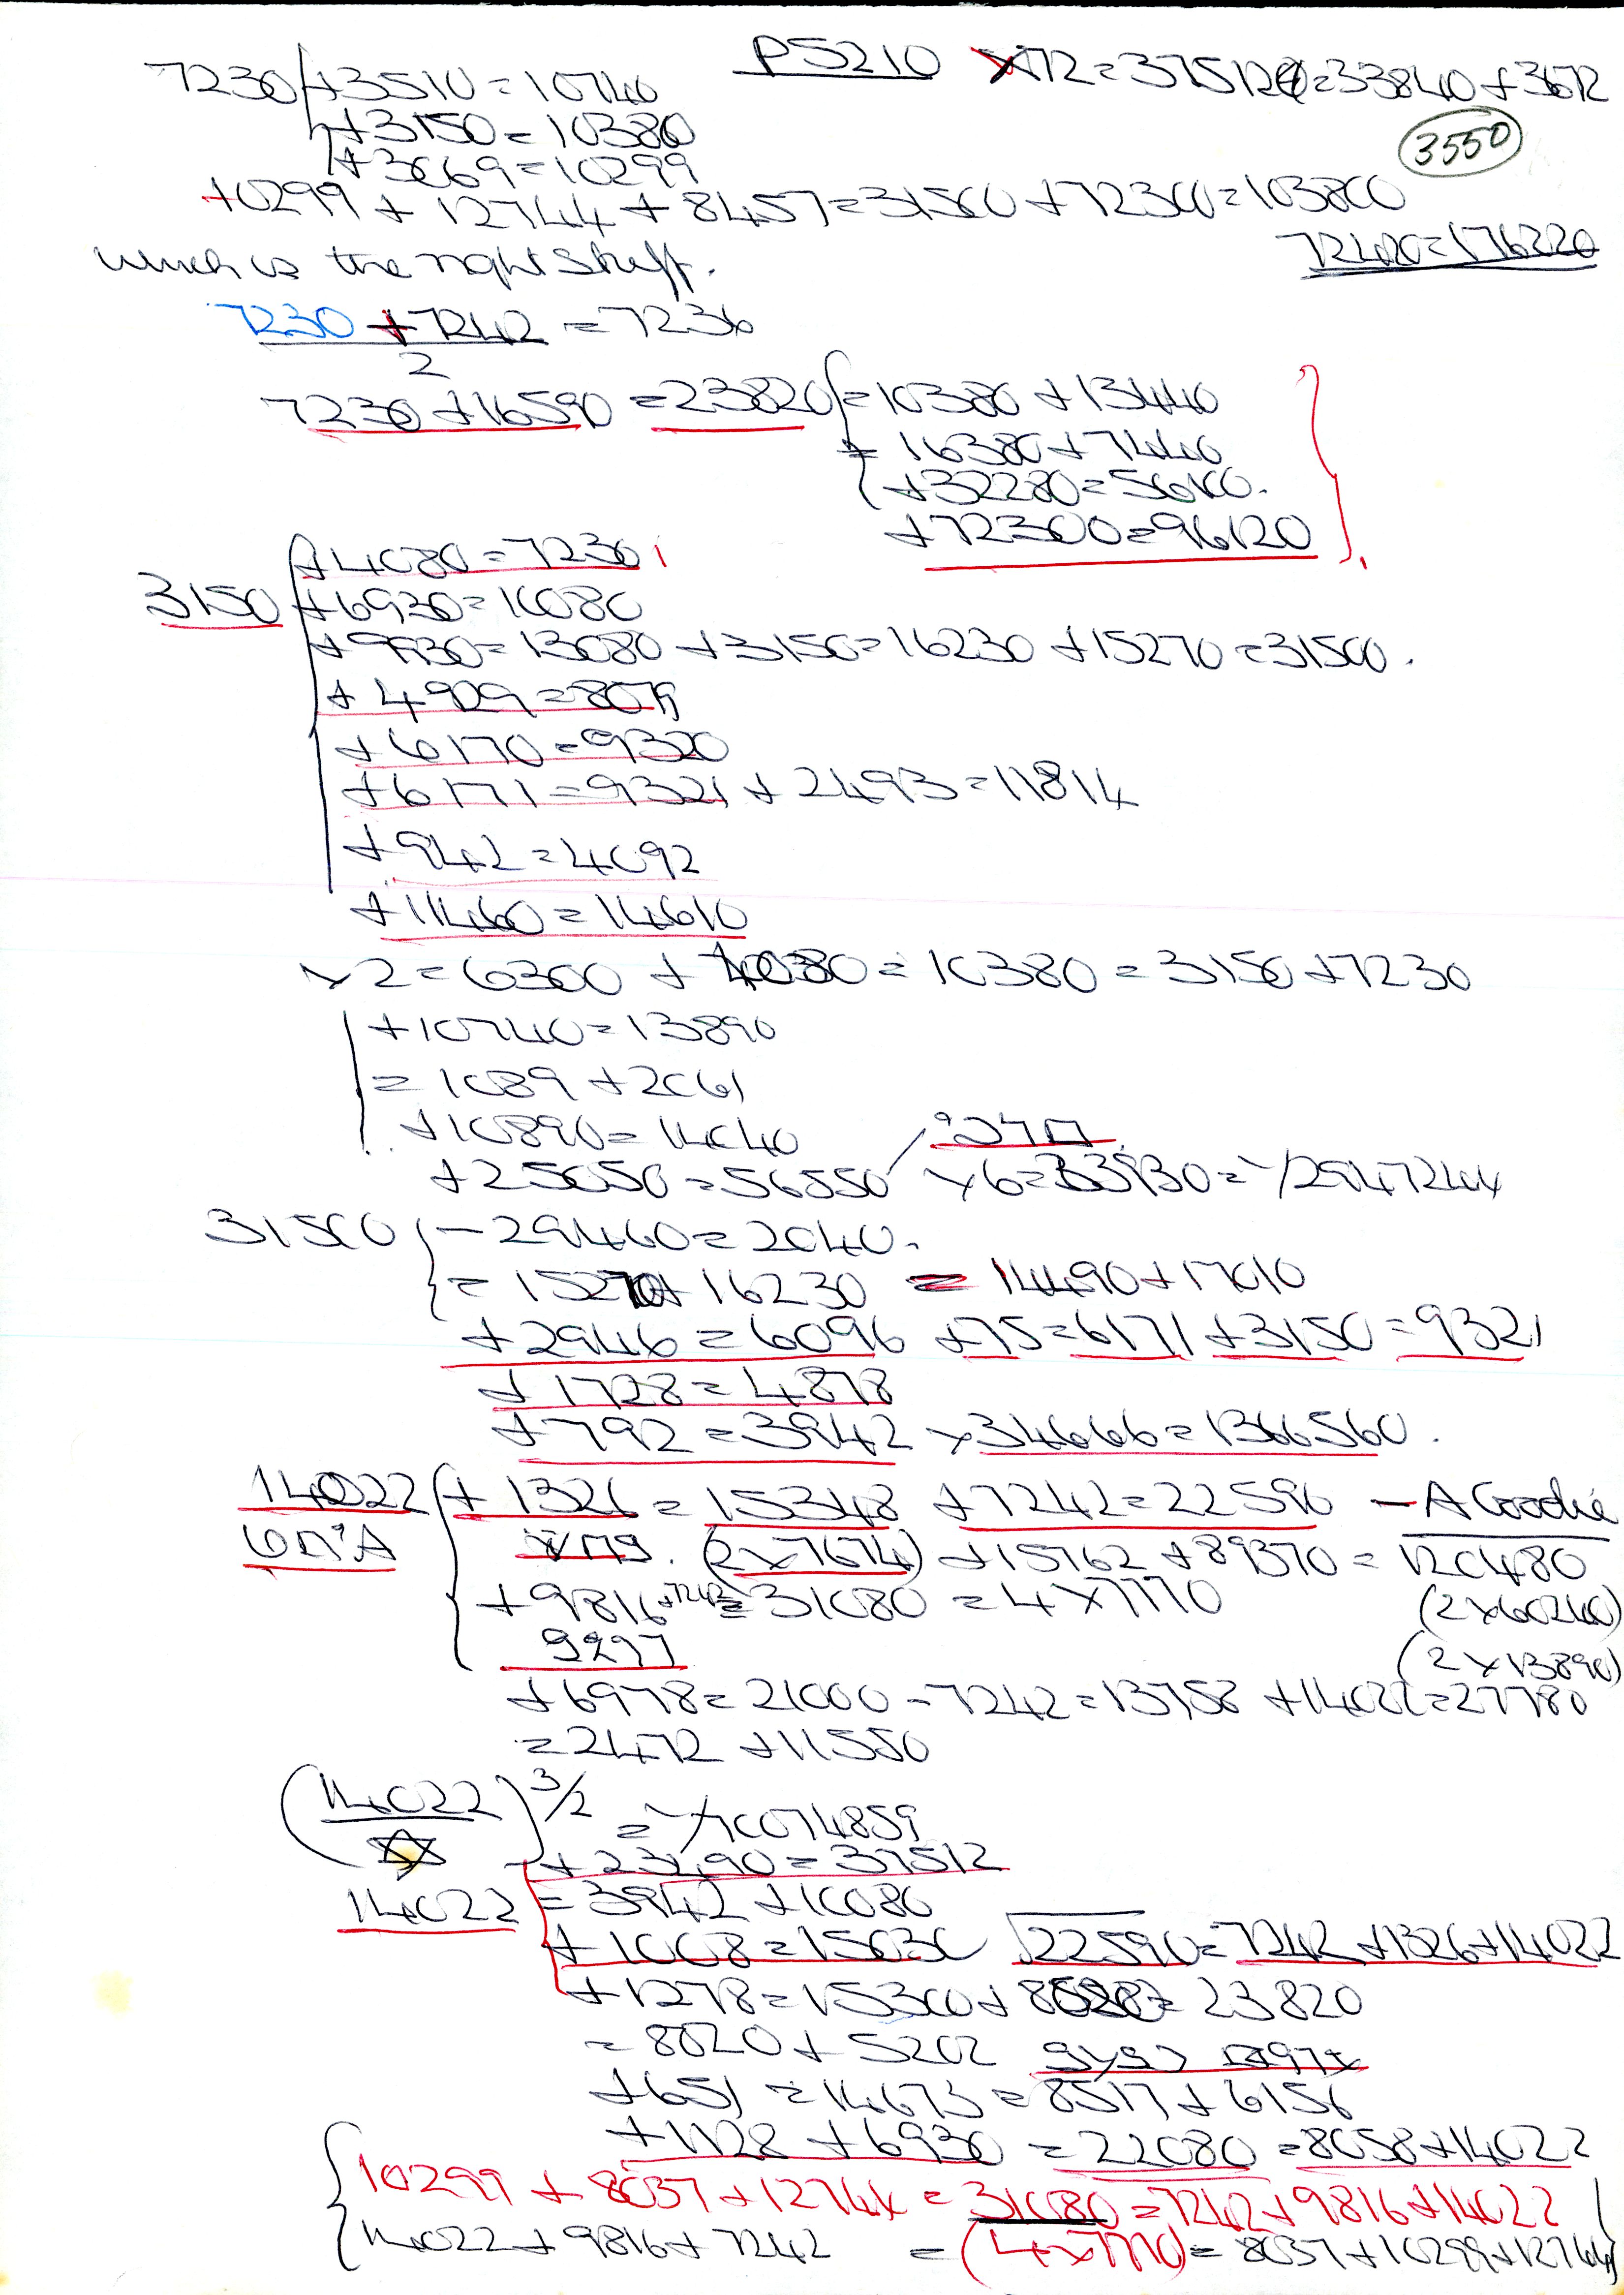 P5210 x 72 = 375120 = 33840 + 3672
7230 + 3510 = 10740
+ 3150 = 10380
+ 3069 = 10299
3550
+ 10299 + 12744 + 8457 = 31500 + 72300 = 103800
72420 = 176220
which is the right stuff.
7230 + 7242 = 7236
2
7230 + 16590 = 23820 = 10380 + 13440
= 16380 + 7440
+ 32280 = 56100.
+ 72300 = 96120
3150 + 4080 = 7230
+ 6930 = 10080
+ 9930 = 13080 + 3150 = 16230 + 15270 = 31500.
+ 4929 = 8079
+ 6170 = 9320
+ 6171 = 9321 + 2493 = 11814
+ 942 = 4092
+ 11460 = 14610
x 2 = 6300 + 4080 = 10380 = 3150 + 7230
+ 10740 = 13890
= 1089 + 2061
+ 10890 = 14040
+ 25050 = 56550 x 6 = 33930 = 
31500 - 29460 = 2040.
= 15270 + 16230 = 14490 + 17010
+ 2946 = 6096 + 75 = 6171 + 3150 = 9321
+ 1728 = 4878
+ 792 = 3942 x 34666 = 1366560.
14022 + 1326 = 15348 + 7242 = 22590 - A Goodie
(2 x 7674) + 15762 + 89370 = 120480
+ 9816 + 7242 = 31080 = 4 x 7770 (2 x 60240)
9297 (2 x 13890)
+ 6978 = 21000 - 7242 = 13758 + 14022 = 27780
= 2472 + 11550
(14022 / ☆) 3/2
+ 23490 = 37512
14022 = 3942 + 10080
+ 1008 = 15030 22590 = 7242 + 1326 + 14022
+ 1278 = 15300 + 8520 = 23820
= 8820 + 5202
+ 651 = 14673 = 8517 + 6156
+ 1128 + 6930 = 22080 = 8058 + 14022
10299 + 8037 + 12744 = 31080 = 7242 + 9816 + 14022
14022 + 9816 + 7242 = (4 x 7770) = 8037 + 10299 + 12744